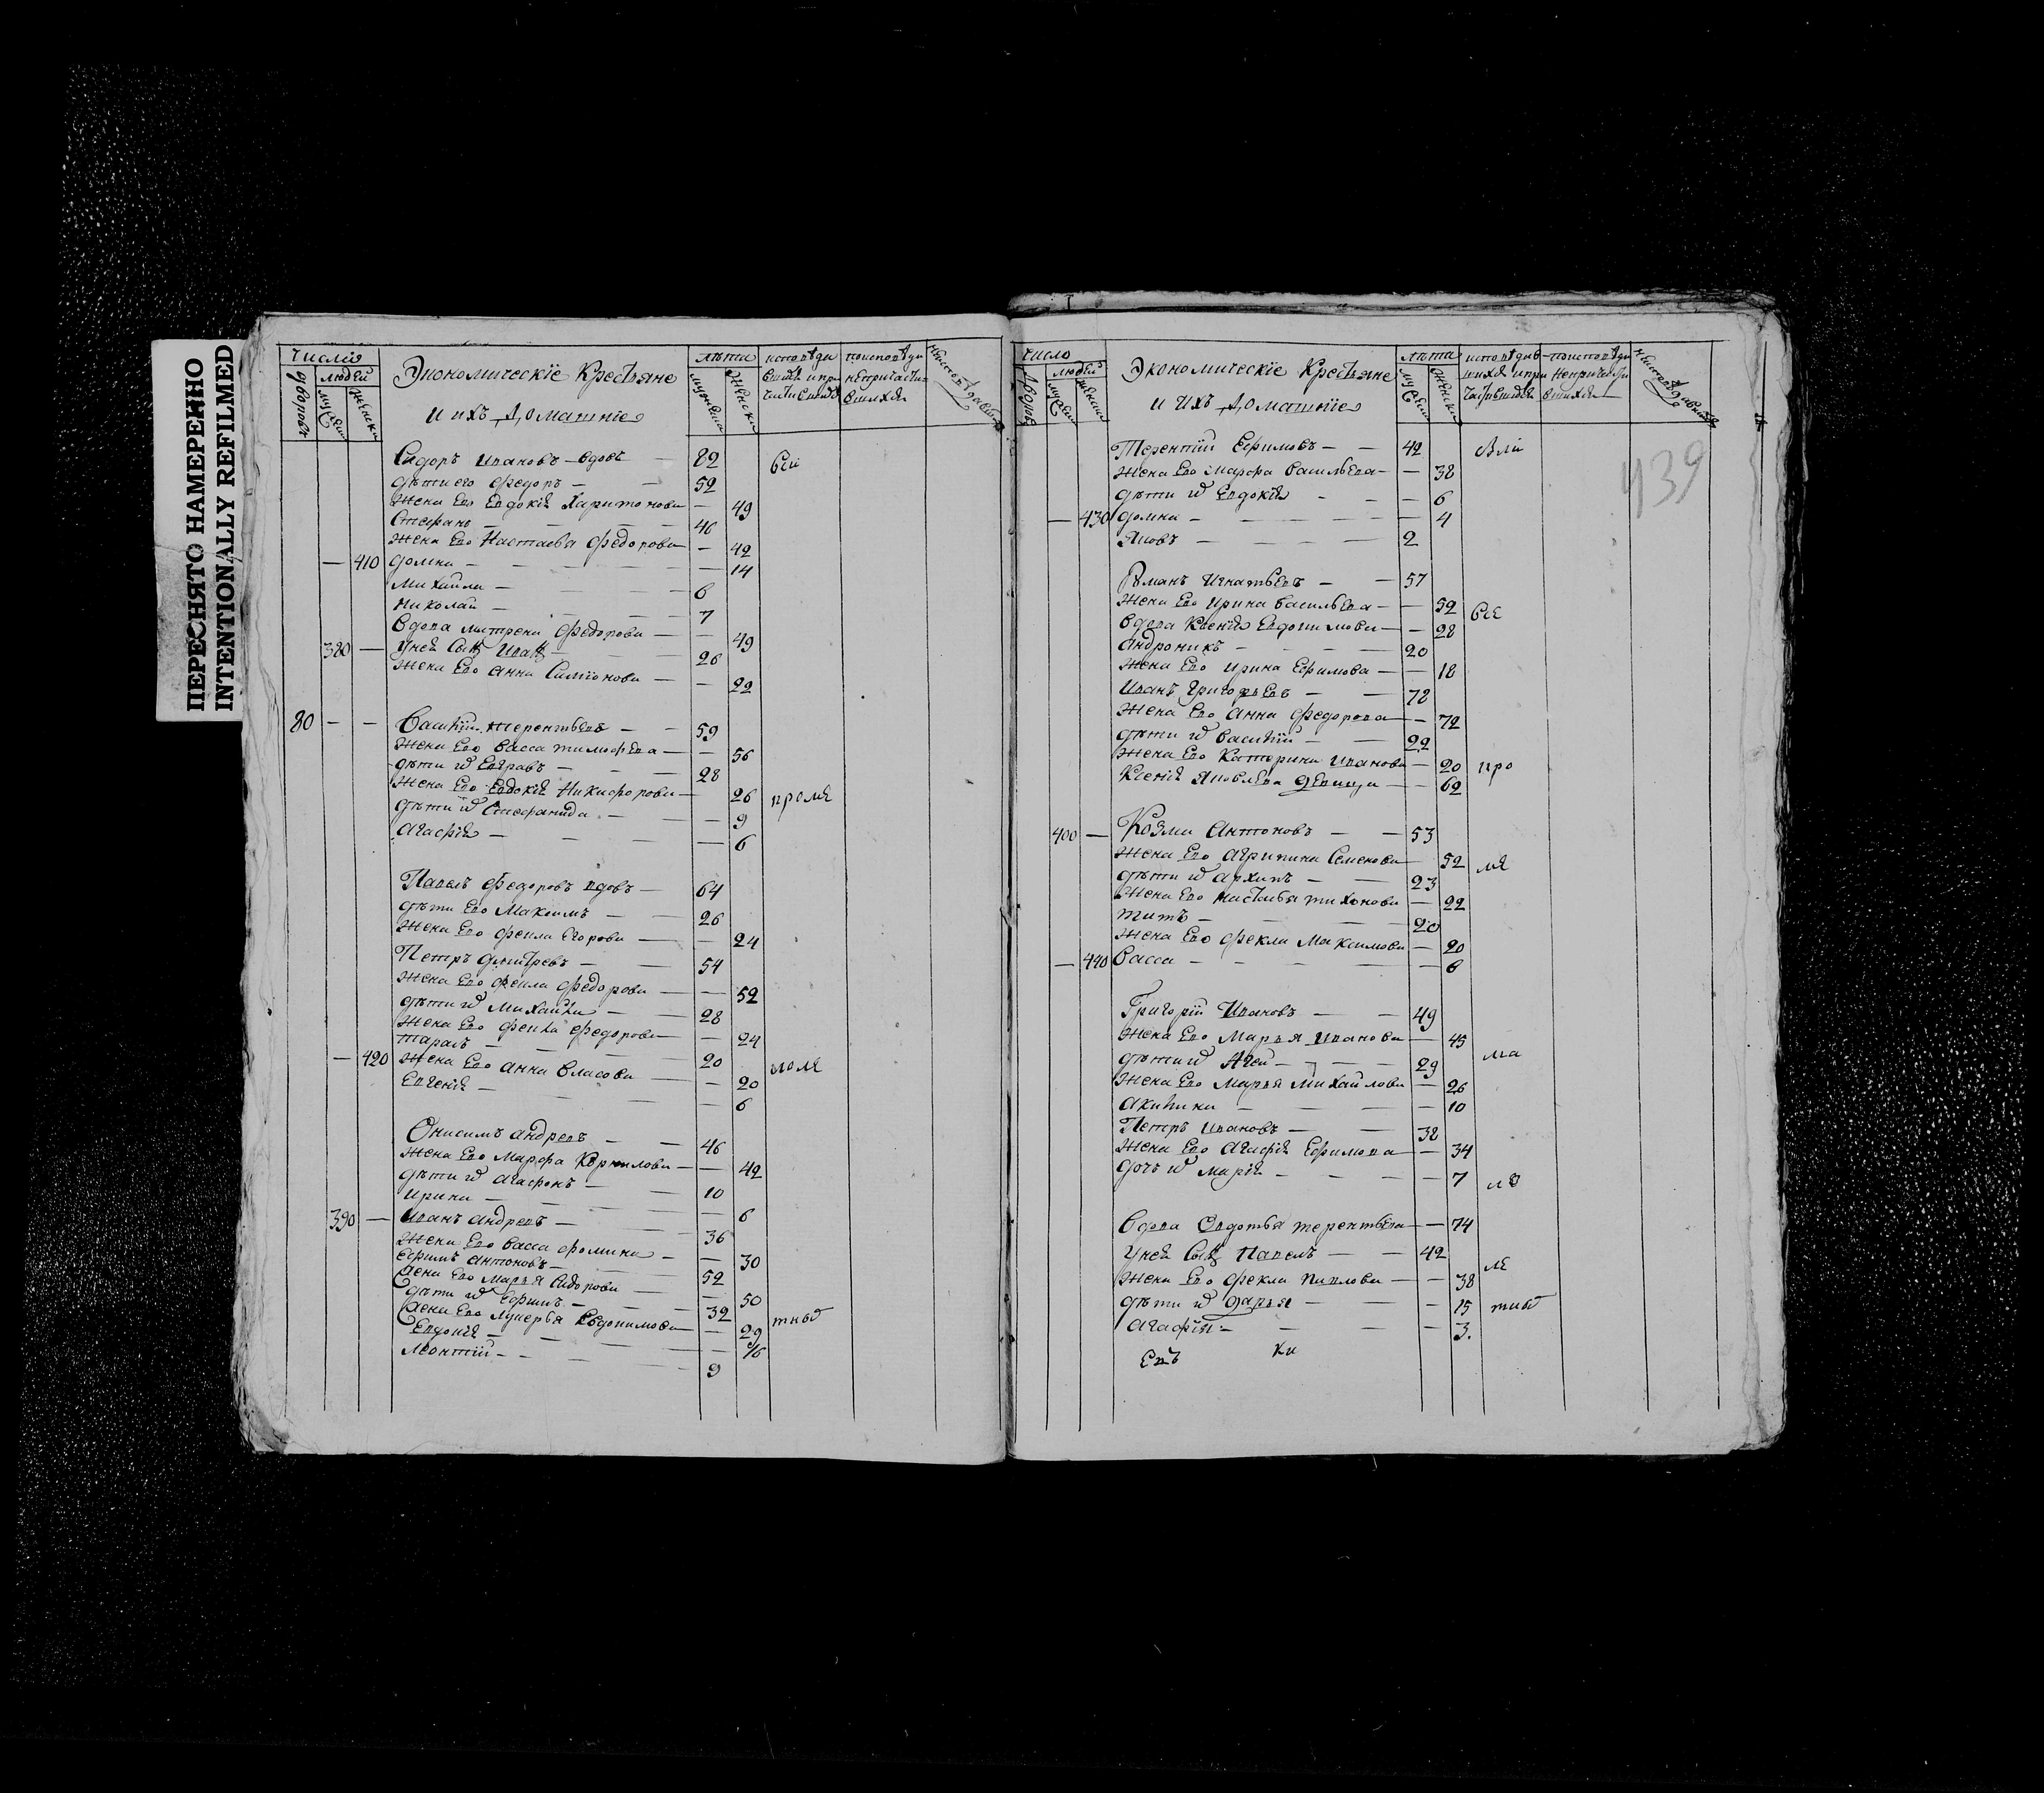 ПЕРЕСНЯТО НАМЕРЕННО
INTENTIONALLY REFILMED
число
людей
дворовъ
Экономическїе Крестьяне
и ихъ Домашнїе
лѣта
Сидоръ Ивановъ вдовъ — 82
дѣти его Федоръ — 52
Жена Ево Евдокїя Харитонова — 49
Стефанъ — 46
Жена Ево Настасья Федорова — 42
— 410 Домна — 14
Михайла — 6
Николай — 7
Вдова Матрена Федорова — 49
380 — Унея сынъ Иванъ — 26
Жена Ево Анна Симионова — 22
80 — — Василїй Терентьевъ — 59
Жена Ево Васса Тимофева — 56
дѣти их Евграфъ — 28
Жена Ево Евдокїя Никифорова — 26
дѣти их Стефанида — 9
Агафїя — 6
Павелъ Федоровъ вдовъ — 64
дѣти Ево Максимъ — 26
Жена Ево Фекла Егорова — 24
Петръ Дмитревъ — 54
Жена Ево Фекла Федорова — 52
дѣти их Михайла — 28
Жена Ево Фекла Федорова — 24
Тарасъ — 20
— 420 Жена Ево Анна Власова — 20
Евгенїя — 6
Онисимъ Андревъ — 46
Жена Ево Марфа Корнилова — 42
дѣти их Агафонъ — 10
Ирина — 6
390 — Иванъ Андревъ — 36
Жена Ево Васса Фомина — 30
Ефимъ Антоновъ — 52
Жена Ево Марья Сидорова — 50
дѣти их Ефимъ — 32
Жена Ево Лукерья Евдокимова — 29
Евдокїя —
Леонтїй — 9
число
людей
Экономическїе Крестьяне
и ихъ Домашнїе
лѣта
439
Терентїй Ефимовъ — 42
Жена Ево Марфа Васильева — 38
дѣти их Евдокїя — 6
— 430 Домна — 4
Яковъ — 2
Романъ Игнатьевъ — 57
Жена Ево Ирина Васильева — 52 все
вдова Ксенїя Евдокимова — 28
Андроникъ — 20
Жена Ево Ирина Ефимова — 18
Иванъ Григорьевъ — 72
Жена Ево Анна Федорова — 72
дѣти их Василїй — 22
Жена Ево Катерина Иванова — 20 про
Ксенїя Яковлева девица — 62
400 — Козма Антоновъ — 53
Жена Ево Агрипина Семенова — 52
дѣти их Архипъ — 23
Жена Ево Настасья Тихонова — 22
Титъ — 20
Жена Ево Фекла Максимова — 20
— 440 Васса — 6
Григорїй Ивановъ — 49
Жена Ево Марья Иванова — 45
дѣти их Агей — 29
Жена Ево Марья Михайлова — 26
Акилина — 10
Петръ Ивановъ — 32
Жена Ево Агафїя Ефимова — 34
дочь их Марїя — 7
Вдова Овдотья Терентьева — 74
Унея сынъ Павелъ — 42
Жена Ево Фекла Павлова — 38
дѣти их Дарья — 15
Агафїя — 3.